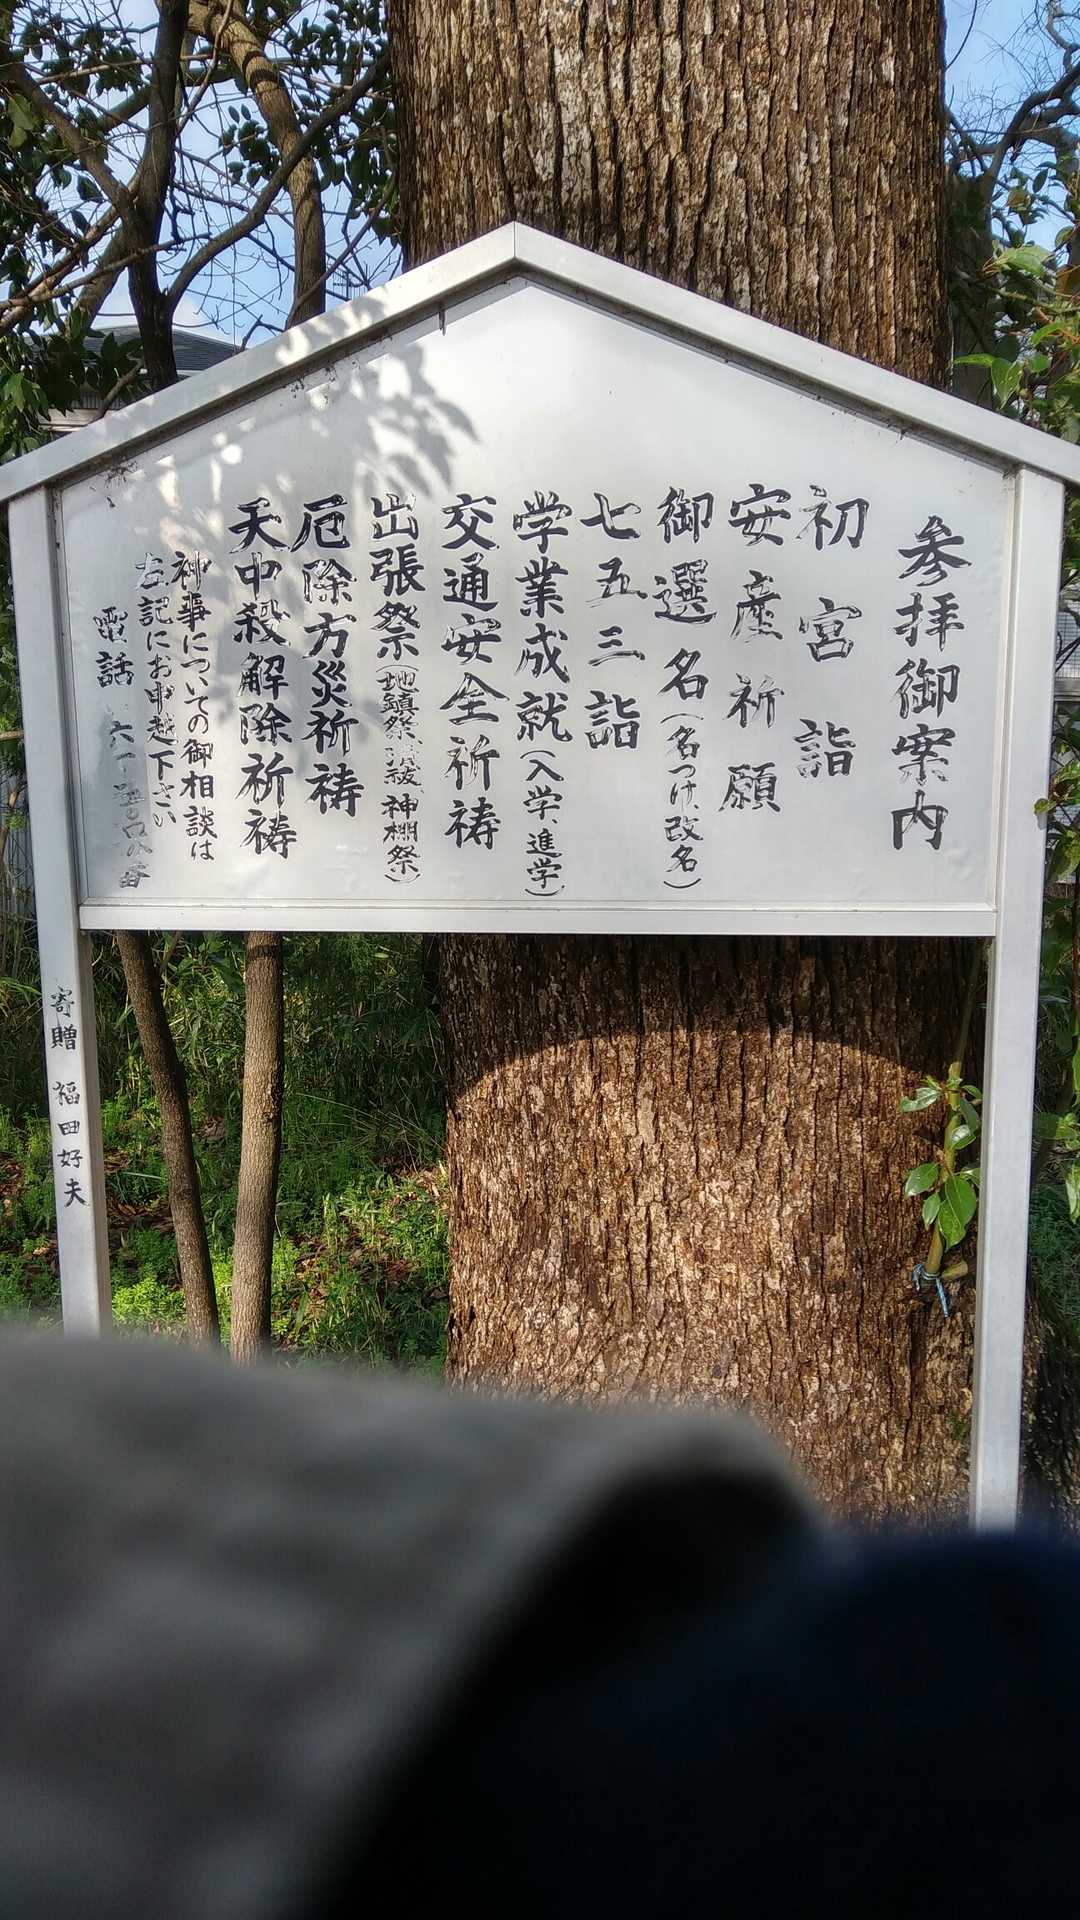 参拝御案内
初宮詣
安産祈願
御選名(名つけ、改名)
七五三詣
学業成就(入学、進学)
交通安全祈祷
出張祭(地鎮祭、清祓、神棚祭)
厄除方災祈祷
天中殺解除祈祷
神事についての御相談は
左記にお申越下さい
電話
寄贈 福田好夫